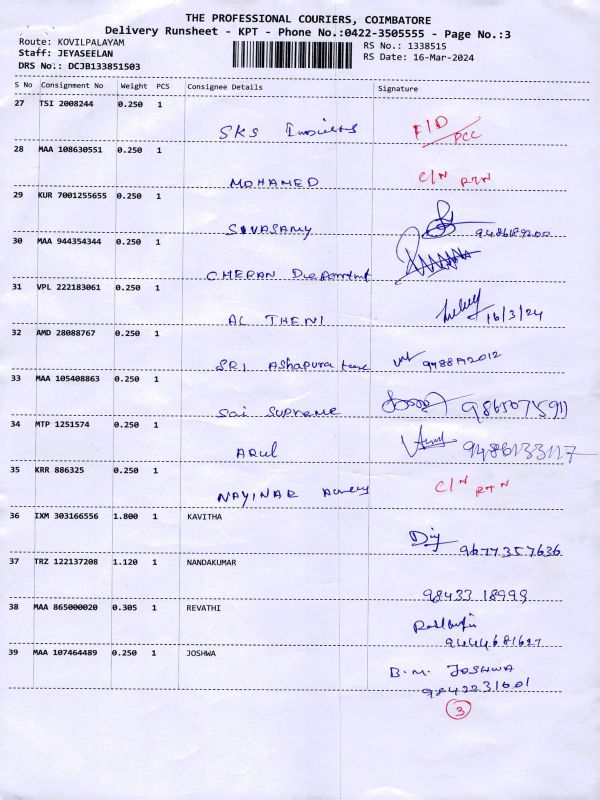 THE PROFESSIONAL COURIERS, COIMBATORE
Delivery Runsheet - KPT - Phone No.:0422-3505555 - Page No.:3
Route: KOVILPALAYAM
Staff: JEYASEELAN
DRS No.: DCJB133851503
RS No.: 1338515
RS Date: 16-Mar-2024
S No Consignment No Weight PCS Consignee Details Signature
27 TSI 2008244 0.250 1
SKS F/D
PCC
28 MAA 108630551 0.250 1
MOHAMED C/N RTN
29 KUR 7001255655 0.250 1
SIVASAMY
30 MAA 944354344 0.250 1
CHERAN
31 VPL 222183061 0.250 1
AL THENI 16/3/24
32 AMD 28088767 0.250 1
SRI Ashapura
33 MAA 105408863 0.250 1
Sai Supreme
34 MTP 1251574 0.250 1
ARUL
35 KRR 886325 0.250 1
NAYINAR C/N RTN
36 IXM 303166556 1.800 1 KAVITHA
9677357636
37 TRZ 122137208 1.120 1 NANDAKUMAR
98433 18999
38 MAA 865000020 0.305 1 REVATHI
9444681627
39 MAA 107464489 0.250 1 JOSHWA
B.M. JOSHWA
9842231601
3